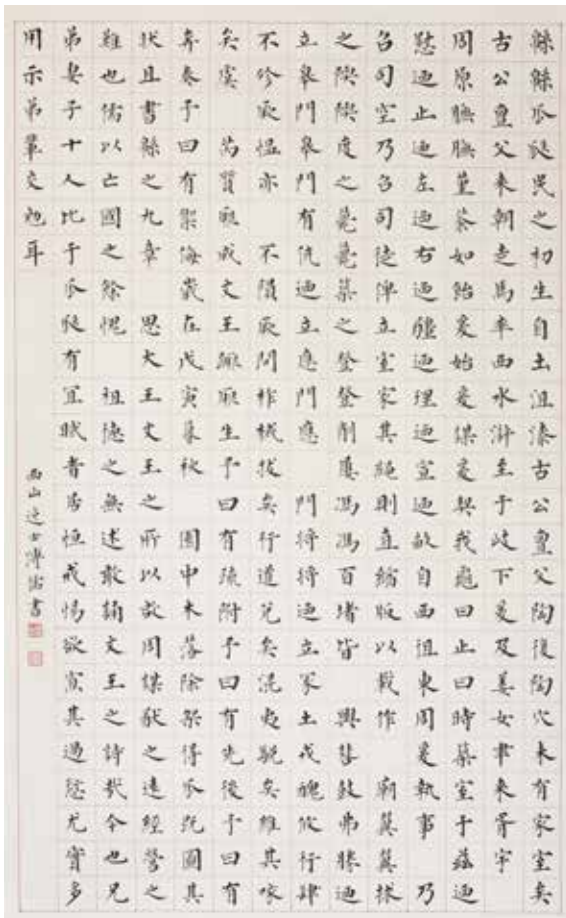 緜緜瓜瓞民之初生自土沮漆古公亶父陶復陶穴未有家室矣
古公亶父來朝走馬率西水滸至于岐下爰及姜女聿來胥宇
周原膴膴堇荼如飴爰始爰謀爰契我龜曰止曰時築室于茲迺
慰迺止迺左迺右迺疆迺理迺宣迺畝自西徂東周爰執事 乃
召司空乃召司徒俾立室家其繩則直縮版以載作 廟翼翼捄
之陾陾度之薨薨築之登登削屢馮馮百堵皆 興鼛鼓弗勝迺
立皋門皋門有伉迺立應門應 門將將迺立冢土戎醜攸行肆
不殄厥慍亦 不隕厥問柞棫拔矣行道兌矣混夷駾矣維其喙
矣虞 芮質厥成文王蹶厥生予曰有疏附予曰有先後予曰有
奔奏予曰有禦侮歲在戊寅暮秋 園中木落除架得瓜既圖其
狀且書緜之九章 思大王文王之所以啟周謀猷之遠經營之
難也儒以亡國之餘愧 祖德之無述敢誦文王之詩哉今也兄
弟妻子十人比于瓜瓞有宜者居恒戒惕欲寡其過愆尤實多
用示弟輩交勉耳
西山逸士溥儒書